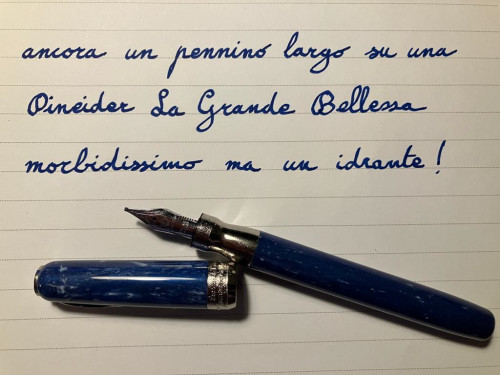 ancora un pennino largo su una
Pineider La Grande Bellessa
morbidissimo ma un idrante!